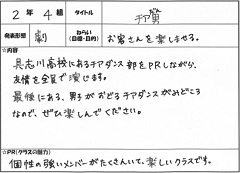 2年4組 タイトル チア男
発表形態 劇 ねらい(目標・目的) お客さんを楽しませる。
☆内容
具志川高校にあるチアダンス部をPRしながら、
友情を全員で演じます。
最後にある、男子がおどるチアダンスがみどころ
なので、ぜひ楽しんでください。
☆PR(クラスの魅力)
個性の強いメンバーがたくさんいて、楽しいクラスです。